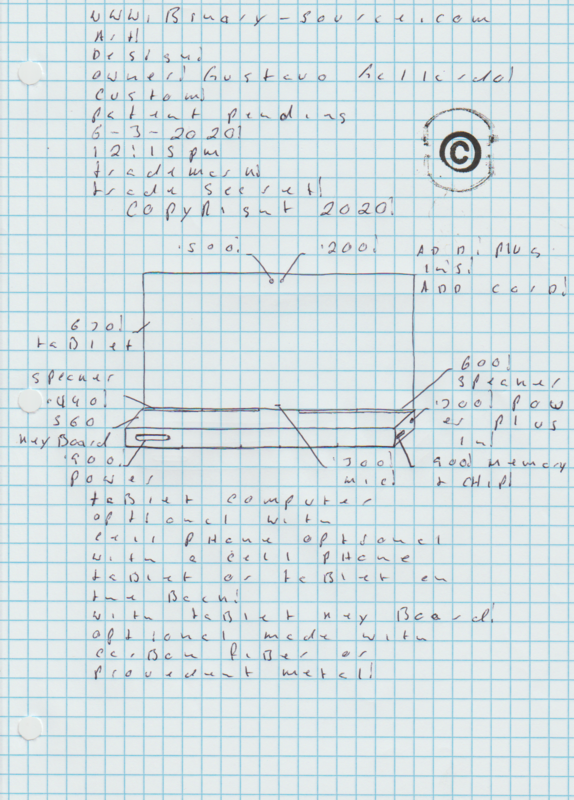 www.Binary-source.com
Art!
Design!
owner! Gustavo Gallardo!
custom!
patent pending
6-3-2020!
12:15 pm
trademark!
trade secret!
CopyRight 2020!
©
.500! .200! ADD! Plug
ins!
ADD card!
670!
taBlet
600!
speaker speaker
.440! .700! pow
560 er plug
key Board in!
.900! .300! 900! memory
power mic! + CHIP!
taBlet computer
optional with
cell pHone optional
with a cell pHone
taBlet or taBlet on
the Back!
with taBlet key Board!
optional made with
carBon fiBer or
provedent metal!